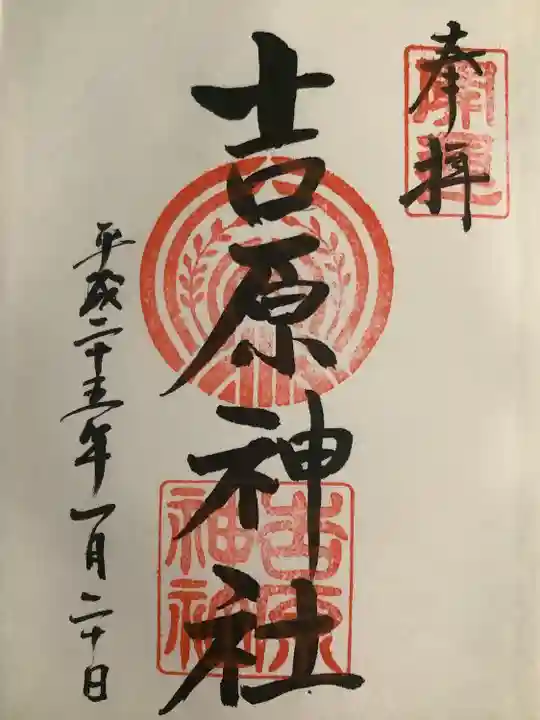 奉拝
開運
吉原神社
吉原神社
平成二十五年一月二十日